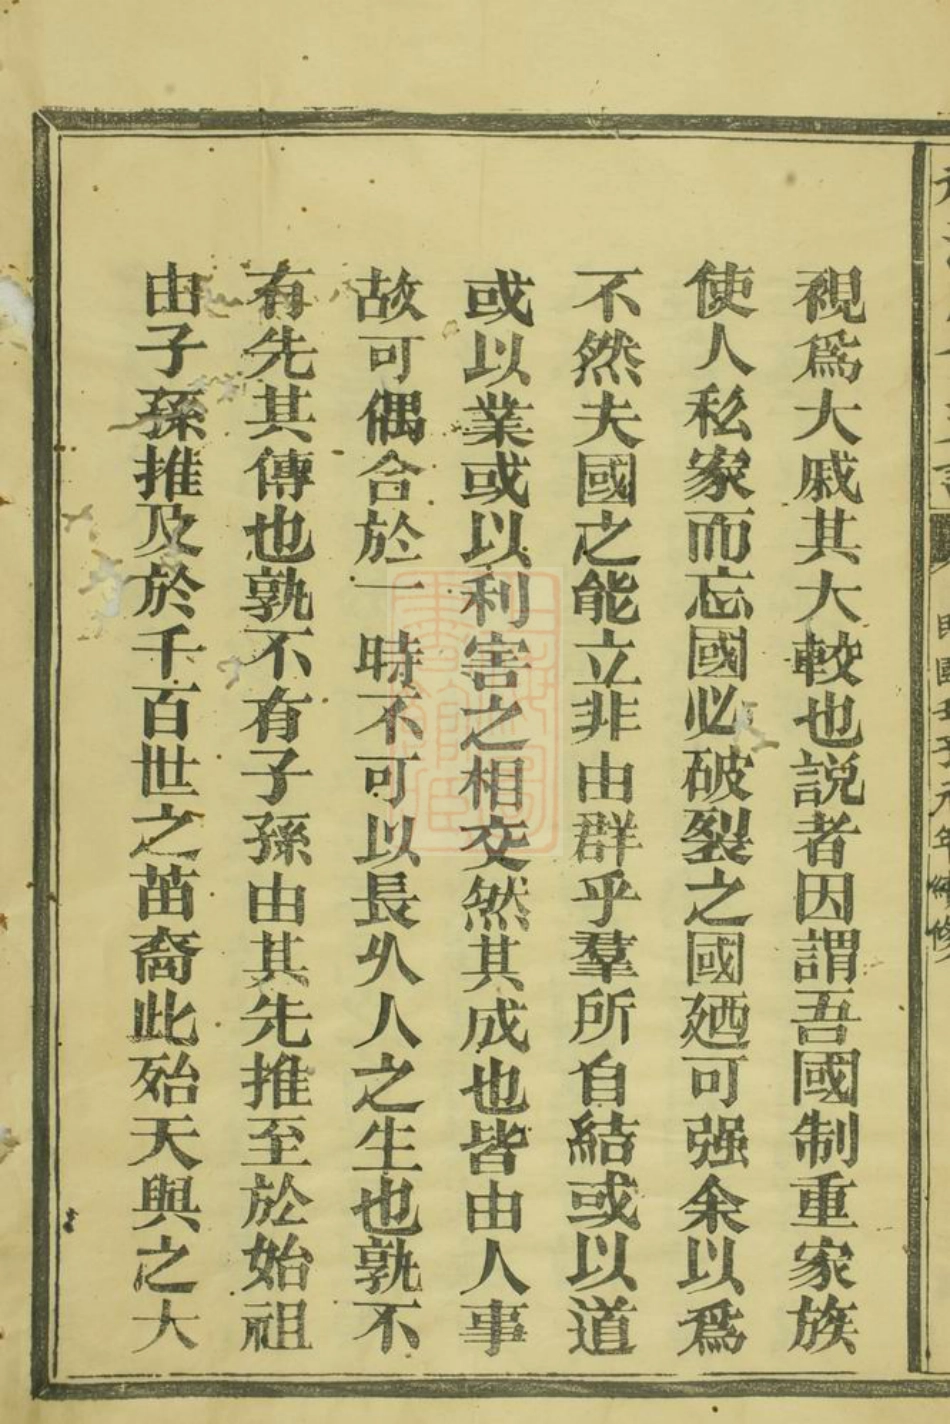 視爲大戚其大較也説者因謂吾國制重家族
使人私家而忘國必破裂之國廼可强余以爲
不然夫國之能立非由群乎羣所自結或以道
或以業或以利害之相交然其成也皆由人事
故可偶合於一時不可以長久人之生也孰不
有先其傳也孰不有子孫由其先推至於始祖
由子孫推及於千百世之苗裔此殆天與之大